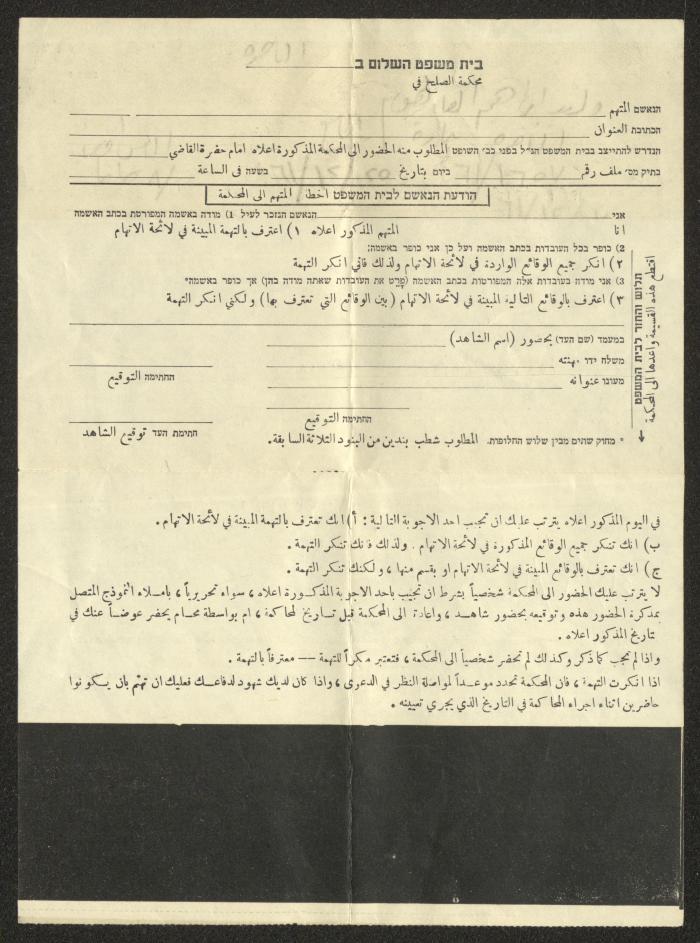 בית משפט השלום ב
محكمة الصلح في
הנאשם المتهم
הכתובת العنوان
הנדרש להתייצב בבית המשפט הנ"ל בפני כב' השופט المطلوب منه الحضور الى المحكمة المذكورة اعلاه امام حضرة القاضي
בתיק מס' ملف رقم ביום بتاريخ בשעה في الساعة
הודעת הנאשם לבית המשפט اخطار المتهم الى المحكمة
אני הנאשם הנזכר לעיל 1) מודה באשמה המפורטת בכתב האשמה
انا المتهم المذكور اعلاه ١) اعترف بالتهمة المبينة في لائحة الاتهام
2) כופר בכל העובדות בכתב האשמה ועל כן אני כופר באשמה;
٢) انكر جميع الوقائع الواردة في لائحة الاتهام ولذلك فاني انكر التهمة
3) אני מודה בעובדות אלה המפורטות בכתב האשמה (פָרֵט את העובדות שאתה מודה בהן) אך כופר באשמה*
٣) اعترف بالوقائع التالية المبينة في لائحة الاتهام (بين الوقائع التي تعترف بها) ولكني انكر التهمة
במעמד (שם העד) بحضور (اسم الشاهد)
משלח ידו مهنته
מענו عنوانه
החתימה التوقيع
החתימה التوقيع
חתימת העד توقيع الشاهد
* מחוק שתים מבין שלוש החלופות. المطلوب شطب بندين من البنود الثلاثة السابقة.
תלוש והחזר לבית המשפט
اقتطع هذه القسيمة واعدها الى المحكمة
في اليوم المذكور اعلاه يترتب عليك ان تجيب احد الاجوبة التالية : أ) انك تعترف بالتهمة المبينة في لائحة الاتهام .
ب) انك تنكر جميع الوقائع المذكورة في لائحة الاتهام . ولذلك فانك تنكر التهمة .
ج) انك تعترف بالوقائع المبينة في لائحة الاتهام او بقسم منها ، ولكنك تنكر التهمة .
لا يترتب عليك الحضور الى المحكمة شخصياً بشرط ان تجيب باحد الاجوبة المذكورة اعلاه ، سواء تحريرياً ، باملاء النموذج المتصل
بمذكرة الحضور هذه وتوقيعه بحضور شاهد ، واعادته الى المحكمة قبل تاريخ المحاكمة ، ام بواسطة محام يحضر عوضاً عنك في
التاريخ المذكور اعلاه .
واذا لم تجب كما ذكر وكذلك لم تحضر شخصياً الى المحكمة ، فتعتبر منكراً للتهمة –– معترفاً بالتهمة .
اذا انكرت التهمة ، فان المحكمة تحدد موعداً لمواصلة النظر في الدعوى ، واذا كان لديك شهود لدفاعك فعليك ان تهتم بان يكونوا
حاضرين اثناء اجراء المحاكمة في التاريخ الذي يجري تعيينه .